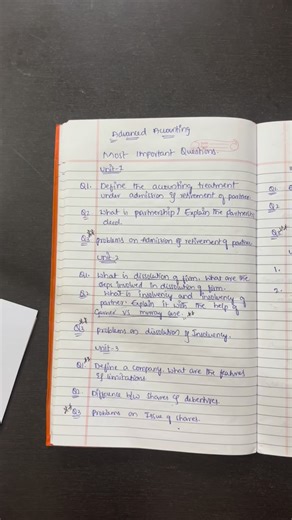 Advanced Accounting
Most Important Questions.
Unit-1
Q1. Define the accounting treatment
under admission & retirement of partners.
Q2 What is partnership? Explain the partnership
deed.
** Q3 problems on admission & retirement of partners
Unit-2
Q1. What is dissolution of firm. What are the
steps involved in dissolution of firm.
Q2 What is insolvency and insolvency of
partner. Explain it with the help of
Garner VS Murray case. **
** Q3 problems on dissolution & Insolvency.
Unit-3
Q1 ** Define a company. What are the features
& limitations
Q2 Difference b/w Shares & debentures
** Q3 Problems on Issue of Shares.
Q1
Q2
Q3 **
1.
2.